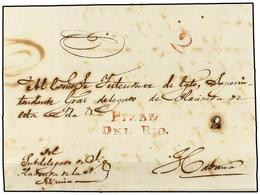 2
Al Exmo. Sr. Intendente de Egto, Superin
tendente Gral delegado de Hacienda de
esta Isla &
PINAR
DEL RIO.
2
Del
Subdelegado de
Hacienda de la
Habana